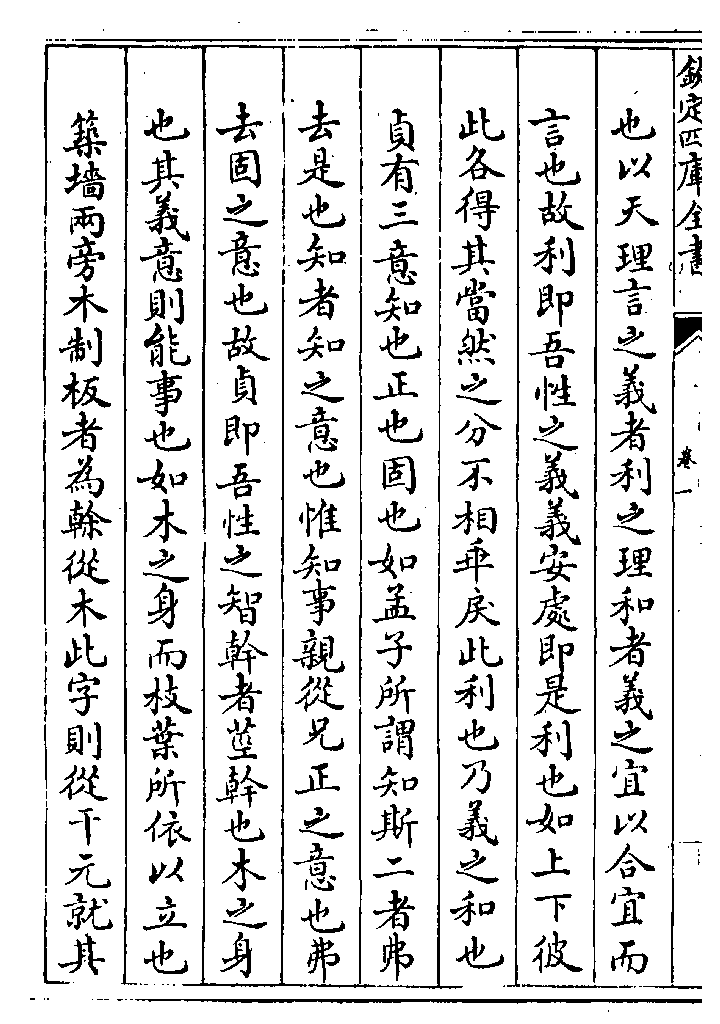 欽定四庫全書
卷一
也以天理言之義者利之理和者義之宜以合宜而
言也故利即吾性之義義安處即是利也如上下彼
此各得其當然之分不相乖戾此利也乃義之和也
貞有三意知也正也固也如孟子所謂知斯二者弗
去是也知者知之意也惟知事親從兄正之意也弗
去固之意也故貞即吾性之智幹者莖幹也木之身
也其義意則能事也如木之身而枝葉所依以立也
築墻兩旁木制板者為榦從木此字則從干元就其